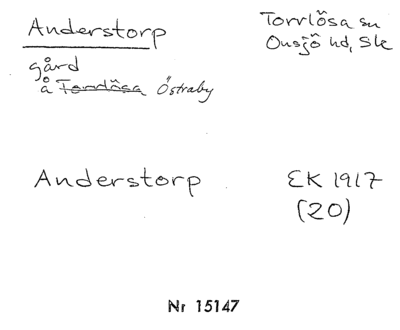 Anderstorp
Torrlösa sn
Onsjö hd, Sk
gård
å Torrlösa Östraby
Anderstorp
EK 1917
(20)
Nr 15147